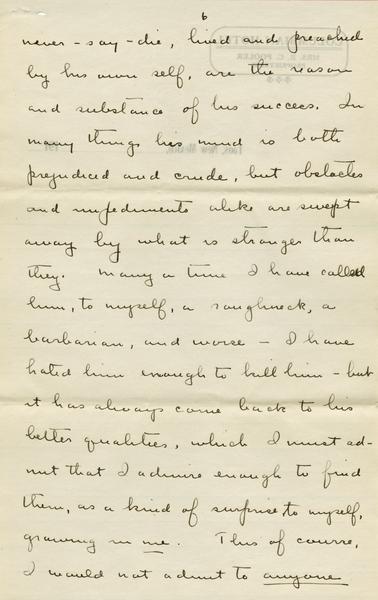 6
never-say-die, lived and preached
by his own self, are the reason
and substance of his success. In
many things his mind is both
prejudiced and crude, but obstacles
and impediments alike are swept
away by what is stronger than
they. Many a time I have called
him, to myself, a roughneck, a
barbarian, and worse – I have
hated him enough to kill him – but
it has always come back to his
better qualities, which I must ad-
mit that I admire enough to find
them, as a kind of surprise to myself,
growing in me. This of course,
I would not admit to anyone